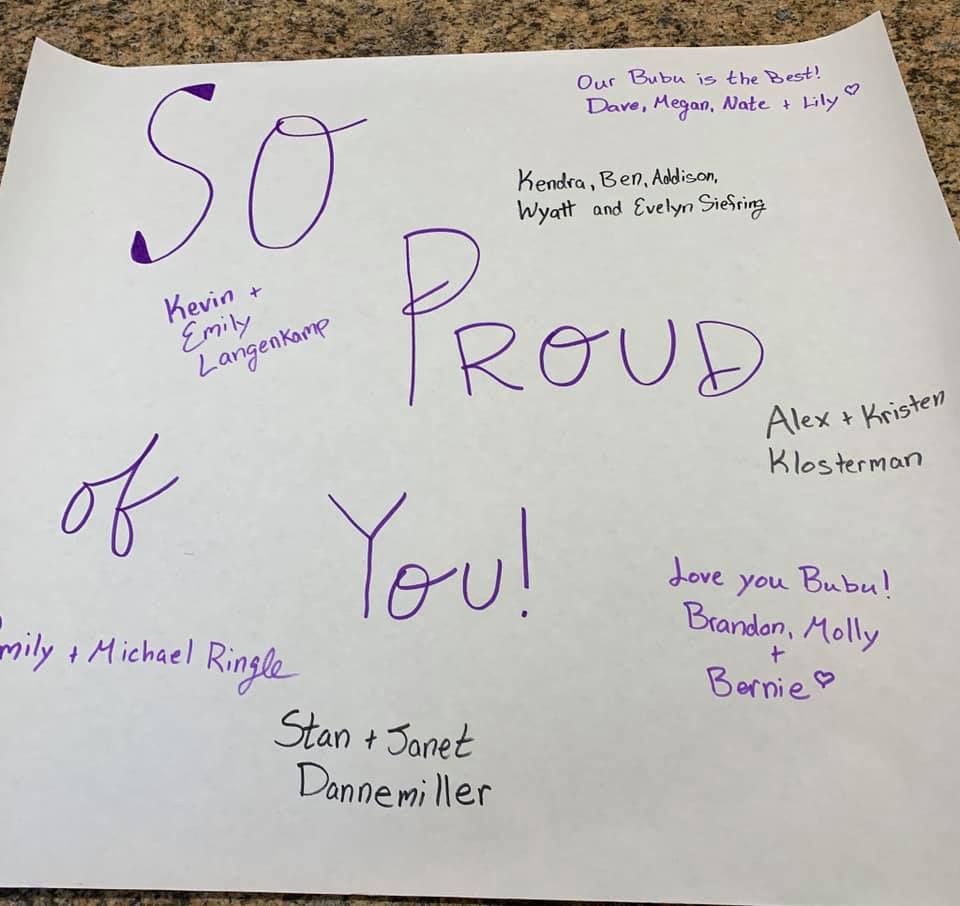 Our Bubu is the Best!
Dave, Megan, Nate + Lily
SO
Kendra, Ben, Addison,
Wyatt and Evelyn Siefring
PROUD
Kevin +
Emily
Langenkamp
Alex + Kristen
Klosterman
of
You!
Love you Bubu!
Brandon, Molly
+
Bernie
mily + Michael Ringle
Stan + Janet
Dannemiller